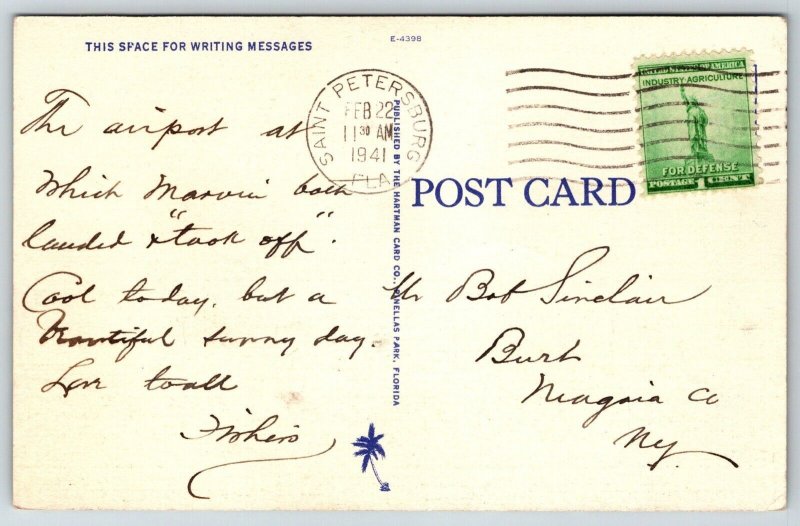 E-4398
THIS SPACE FOR WRITING MESSAGES
SAINT PETERSBURG
FEB 22
11 30 AM
1941
FLA
UNITED STATES OF AMERICA
INDUSTRY·AGRICULTURE
FOR DEFENSE
POSTAGE 1 CENT
POST CARD
PUBLISHED BY THE HARTMAN CARD CO., PINELLAS PARK, FLORIDA
The airport at
which Marvin both
landed & "took off".
Cool today, but a
Beautiful sunny day.
Love to all
Fishers
Mr Bob Sinclair
Burt
Niagara Co
NY.